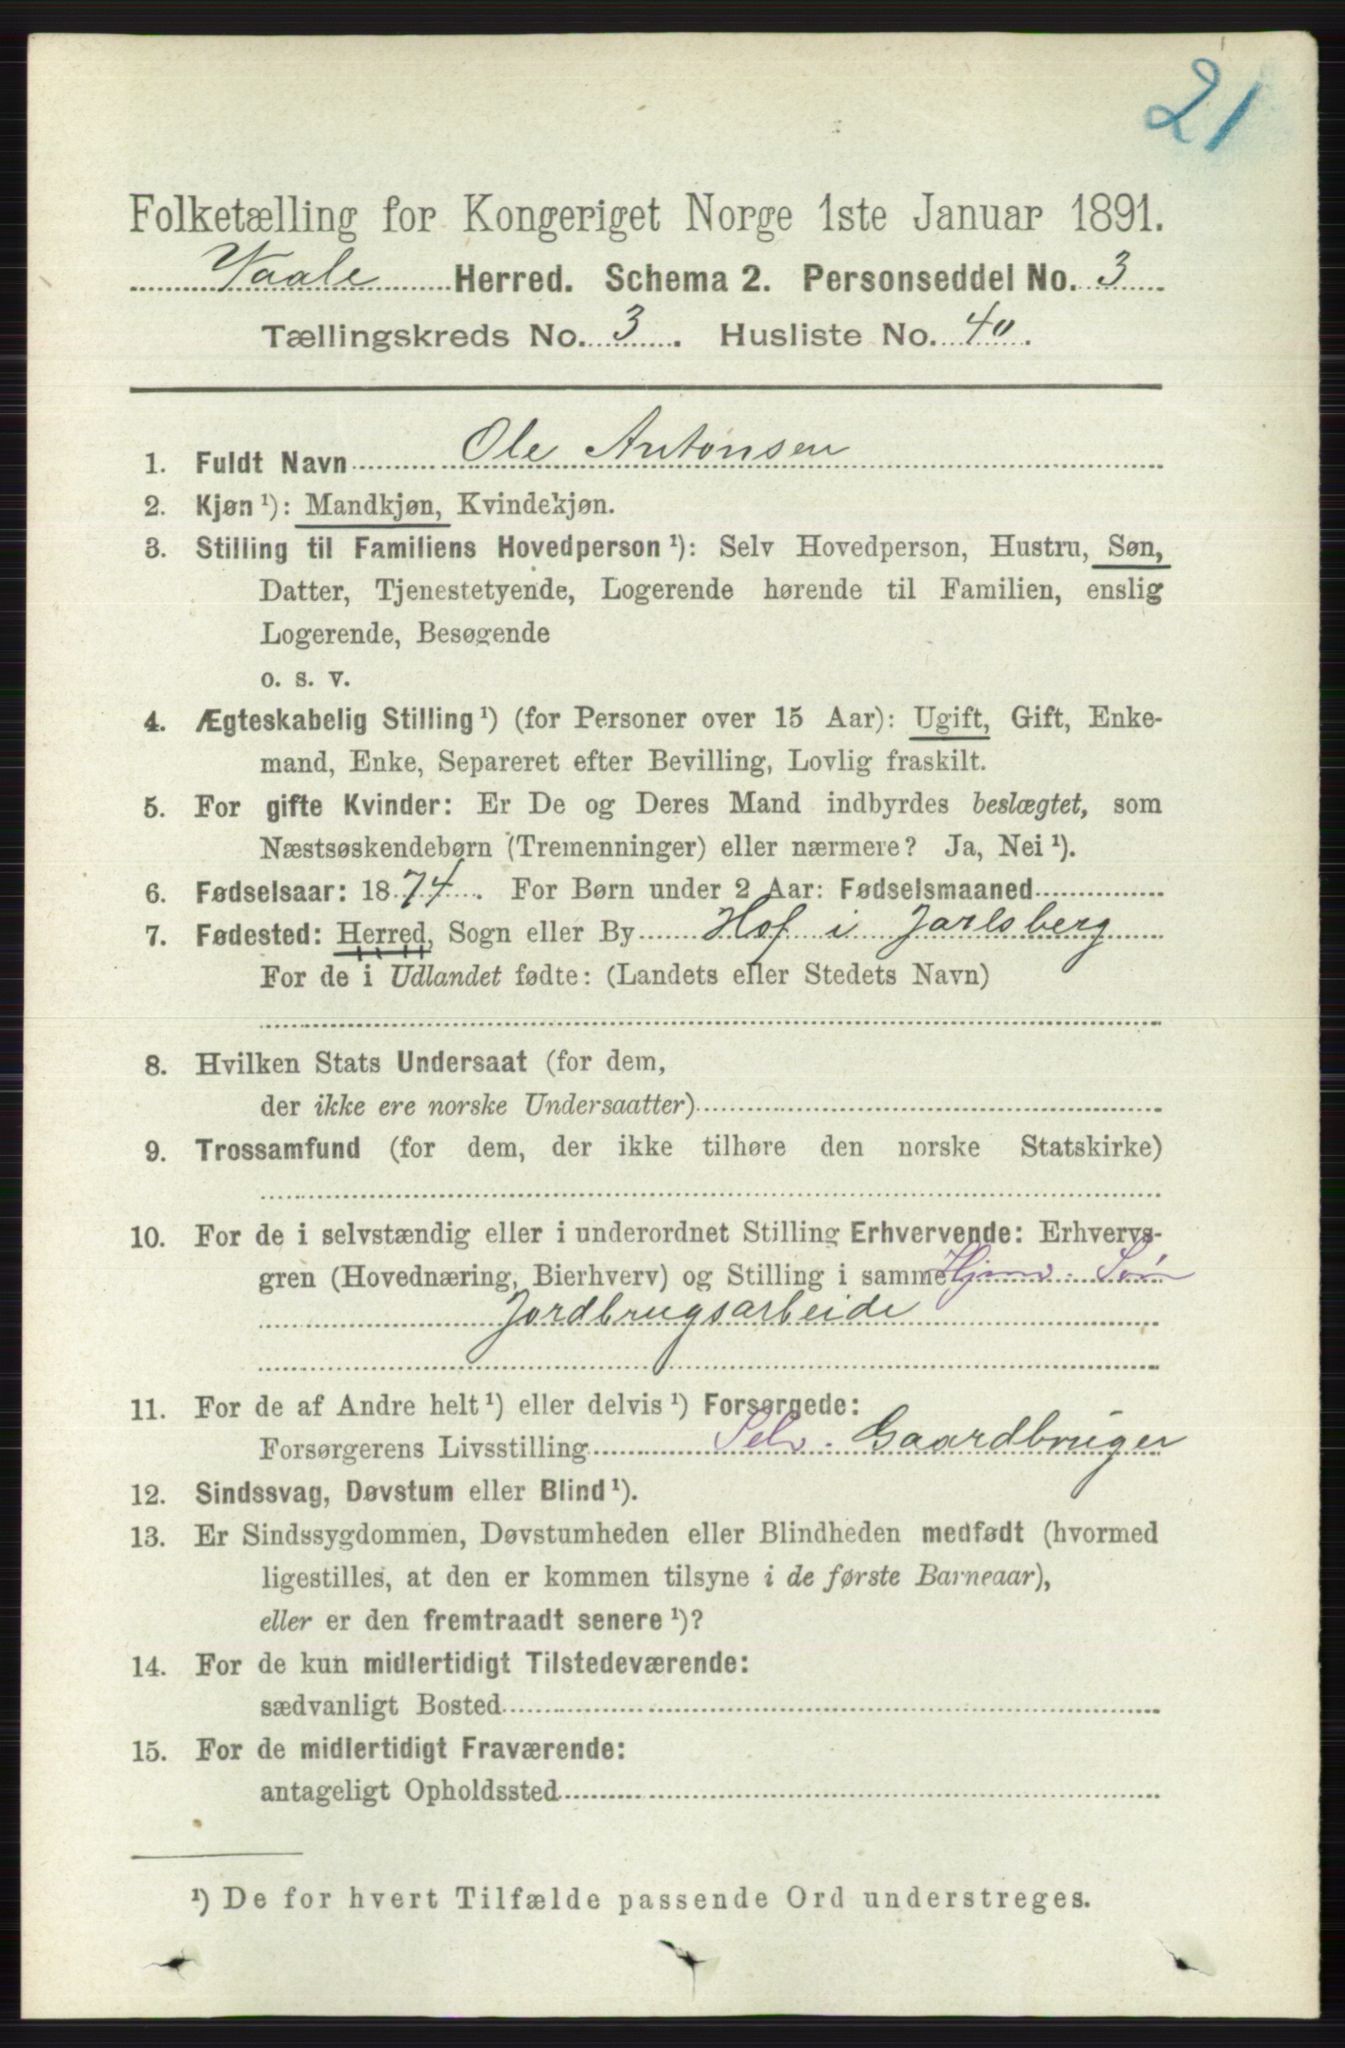 21
Folketælling for Kongeriget Norge 1ste Januar 1891.
Vaale Herred. Schema 2. Personseddel No. 3
Tællingskreds No. 3. Husliste No. 40.
1. Fuldt Navn Ole Antonsen
2. Kjøn ¹): Mandkjøn, Kvindekjøn.
3. Stilling til Familiens Hovedperson ¹): Selv Hovedperson, Hustru, Søn,
Datter, Tjenestetyende, Logerende hørende til Familien, enslig
Logerende, Besøgende
o. s. v.
4. Ægteskabelig Stilling ¹) (for Personer over 15 Aar): Ugift, Gift, Enke-
mand, Enke, Separeret efter Bevilling, Lovlig fraskilt.
5. For gifte Kvinder: Er De og Deres Mand indbyrdes beslægtet, som
Næstsøskendebørn (Tremenninger) eller nærmere? Ja, Nei ¹).
6. Fødselsaar: 1874. For Børn under 2 Aar: Fødselsmaaned
7. Fødested: Herred, Sogn eller By Hof i Jarlsberg
For de i Udlandet fødte: (Landets eller Stedets Navn)
8. Hvilken Stats Undersaat (for dem,
der ikke ere norske Undersaatter)
9. Trossamfund (for dem, der ikke tilhøre den norske Statskirke)
10. For de i selvstændig eller i underordnet Stilling Erhvervende: Erhvervs-
gren (Hovednæring, Bierhverv) og Stilling i samme Hjmv. Søn
Jordbrugsarbeide
11. For de af Andre helt ¹) eller delvis ¹) Forsørgede:
Forsørgerens Livsstilling Selv. Gaardbruger
12. Sindssvag, Døvstum eller Blind ¹).
13. Er Sindssygdommen, Døvstumheden eller Blindheden medfødt (hvormed
ligestilles, at den er kommen tilsyne i de første Barneaar),
eller er den fremtraadt senere ¹)?
14. For de kun midlertidigt Tilstedeværende:
sædvanligt Bosted
15. For de midlertidigt Fraværende:
antageligt Opholdssted
¹) De for hvert Tilfælde passende Ord understreges.